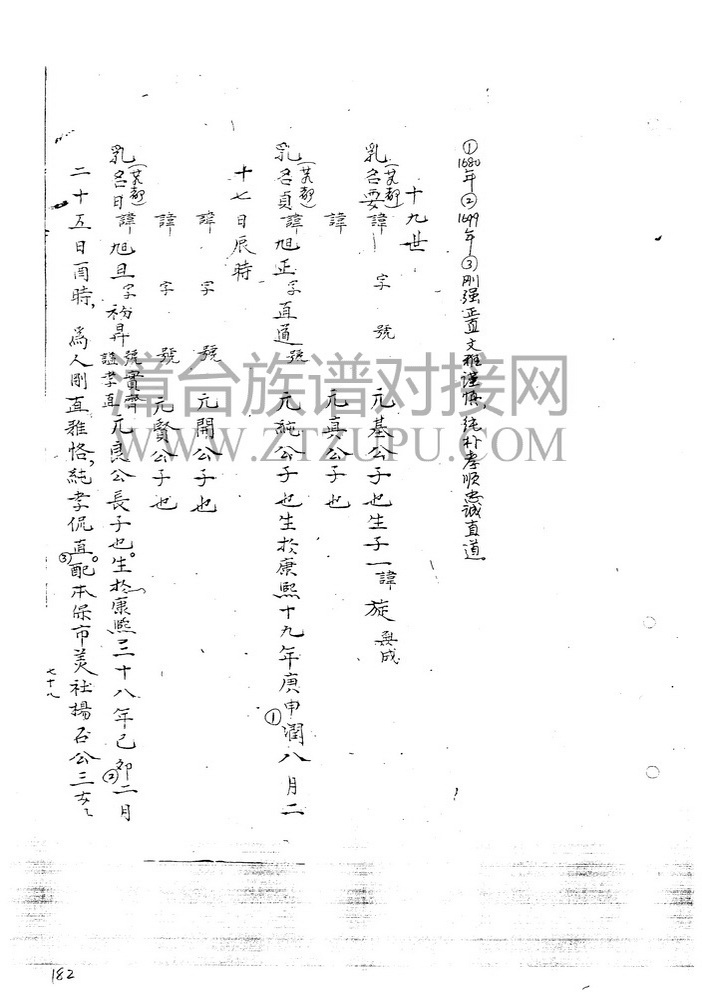 ①1680年②1699年③刚强正直文雅谨慎,纯朴孝顺忠诚直道。
十九世
乳名要諱 字 號 元基公子也生子一諱旋 無成
諱 元真公子也
乳名貞諱旭正字直道號 元純公子也生於康熙十九年庚申①潤八月二
十七日辰時
諱 字 號 元開公子也
諱 字 號 元賢公子也
乳名日諱旭旦字初昇號實齊諡孝直元良公長子也。生於康熙三十八年己卯②二月
二十五日酉時,為人剛直雅恪,純孝侃直。③配本保市美社揚石公三女
七十九
182
漳台族谱对接网
WWW.ZTZUPU.COM